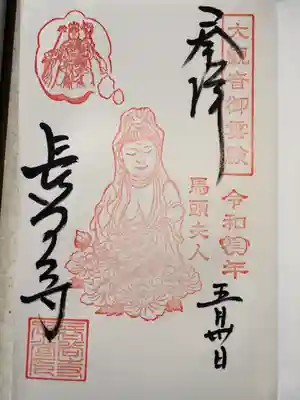 奉拝
大観音御霊験
令和年
五月日
馬頭夫人
長谷寺